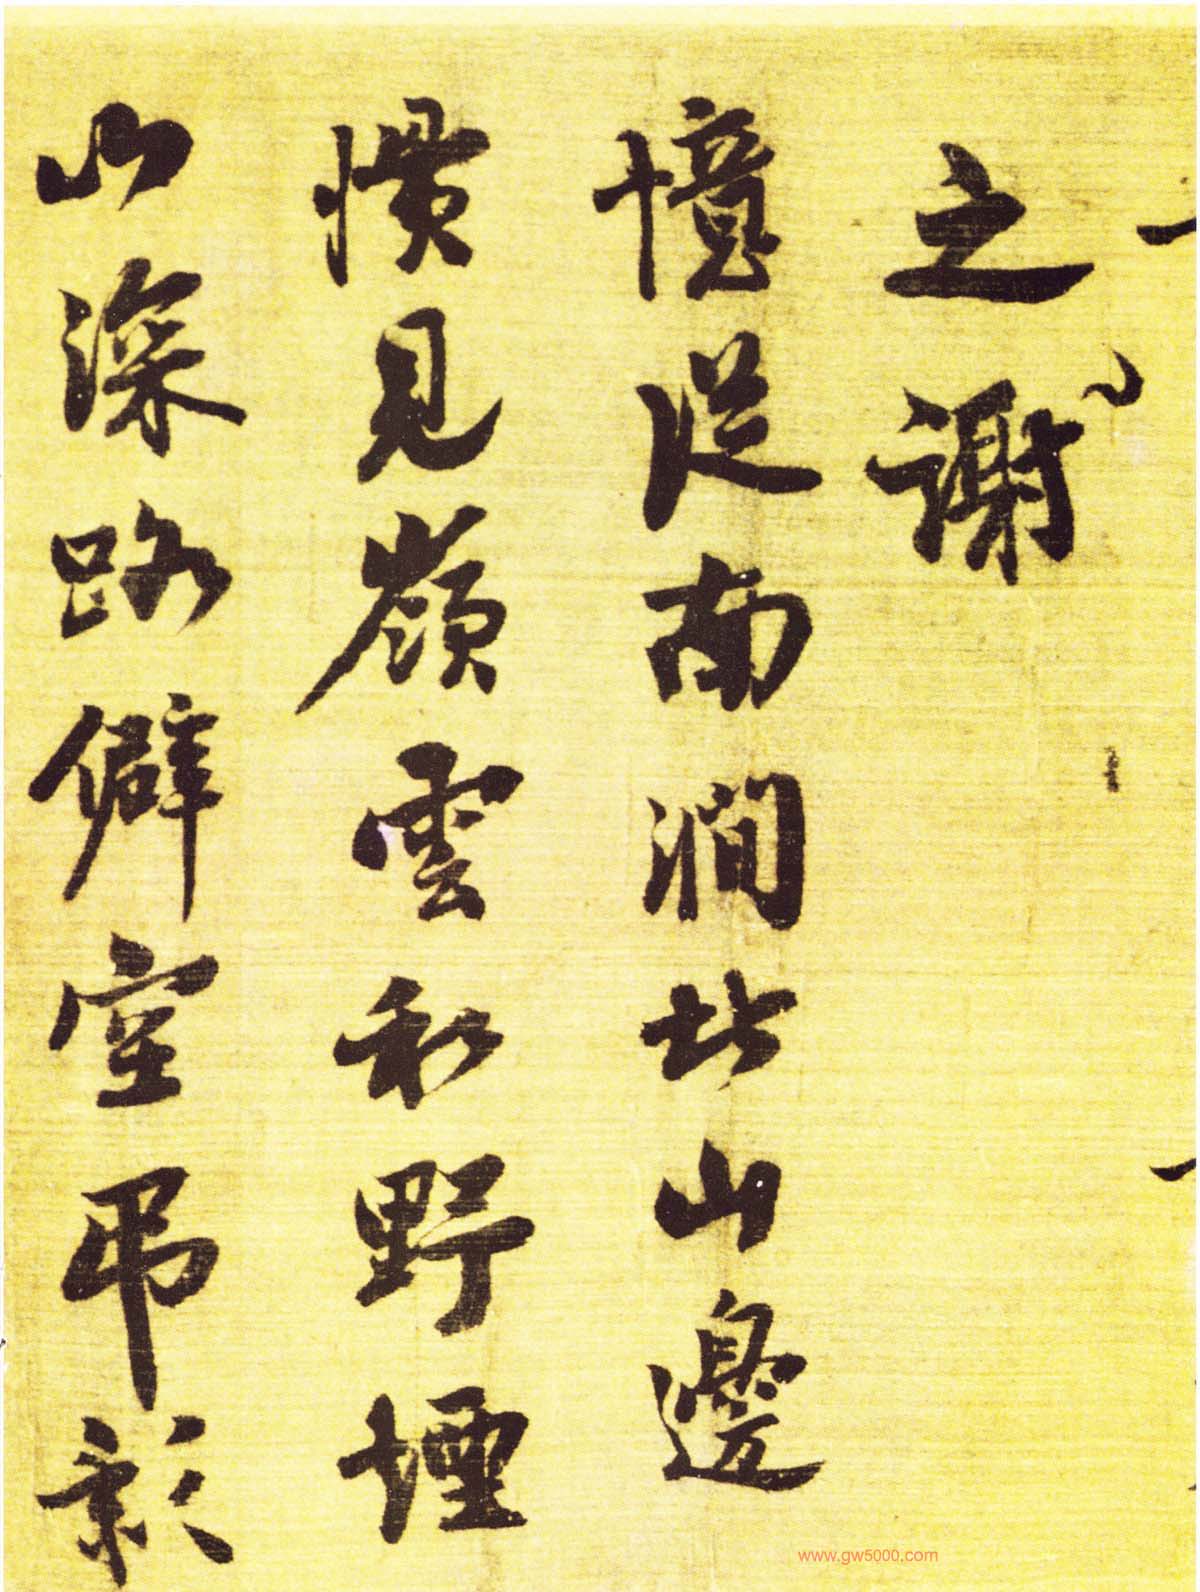 之謝
憶從南澗北山邊
慣見嶺雲和野煙
山深路僻空弔影
www.gw5000.com